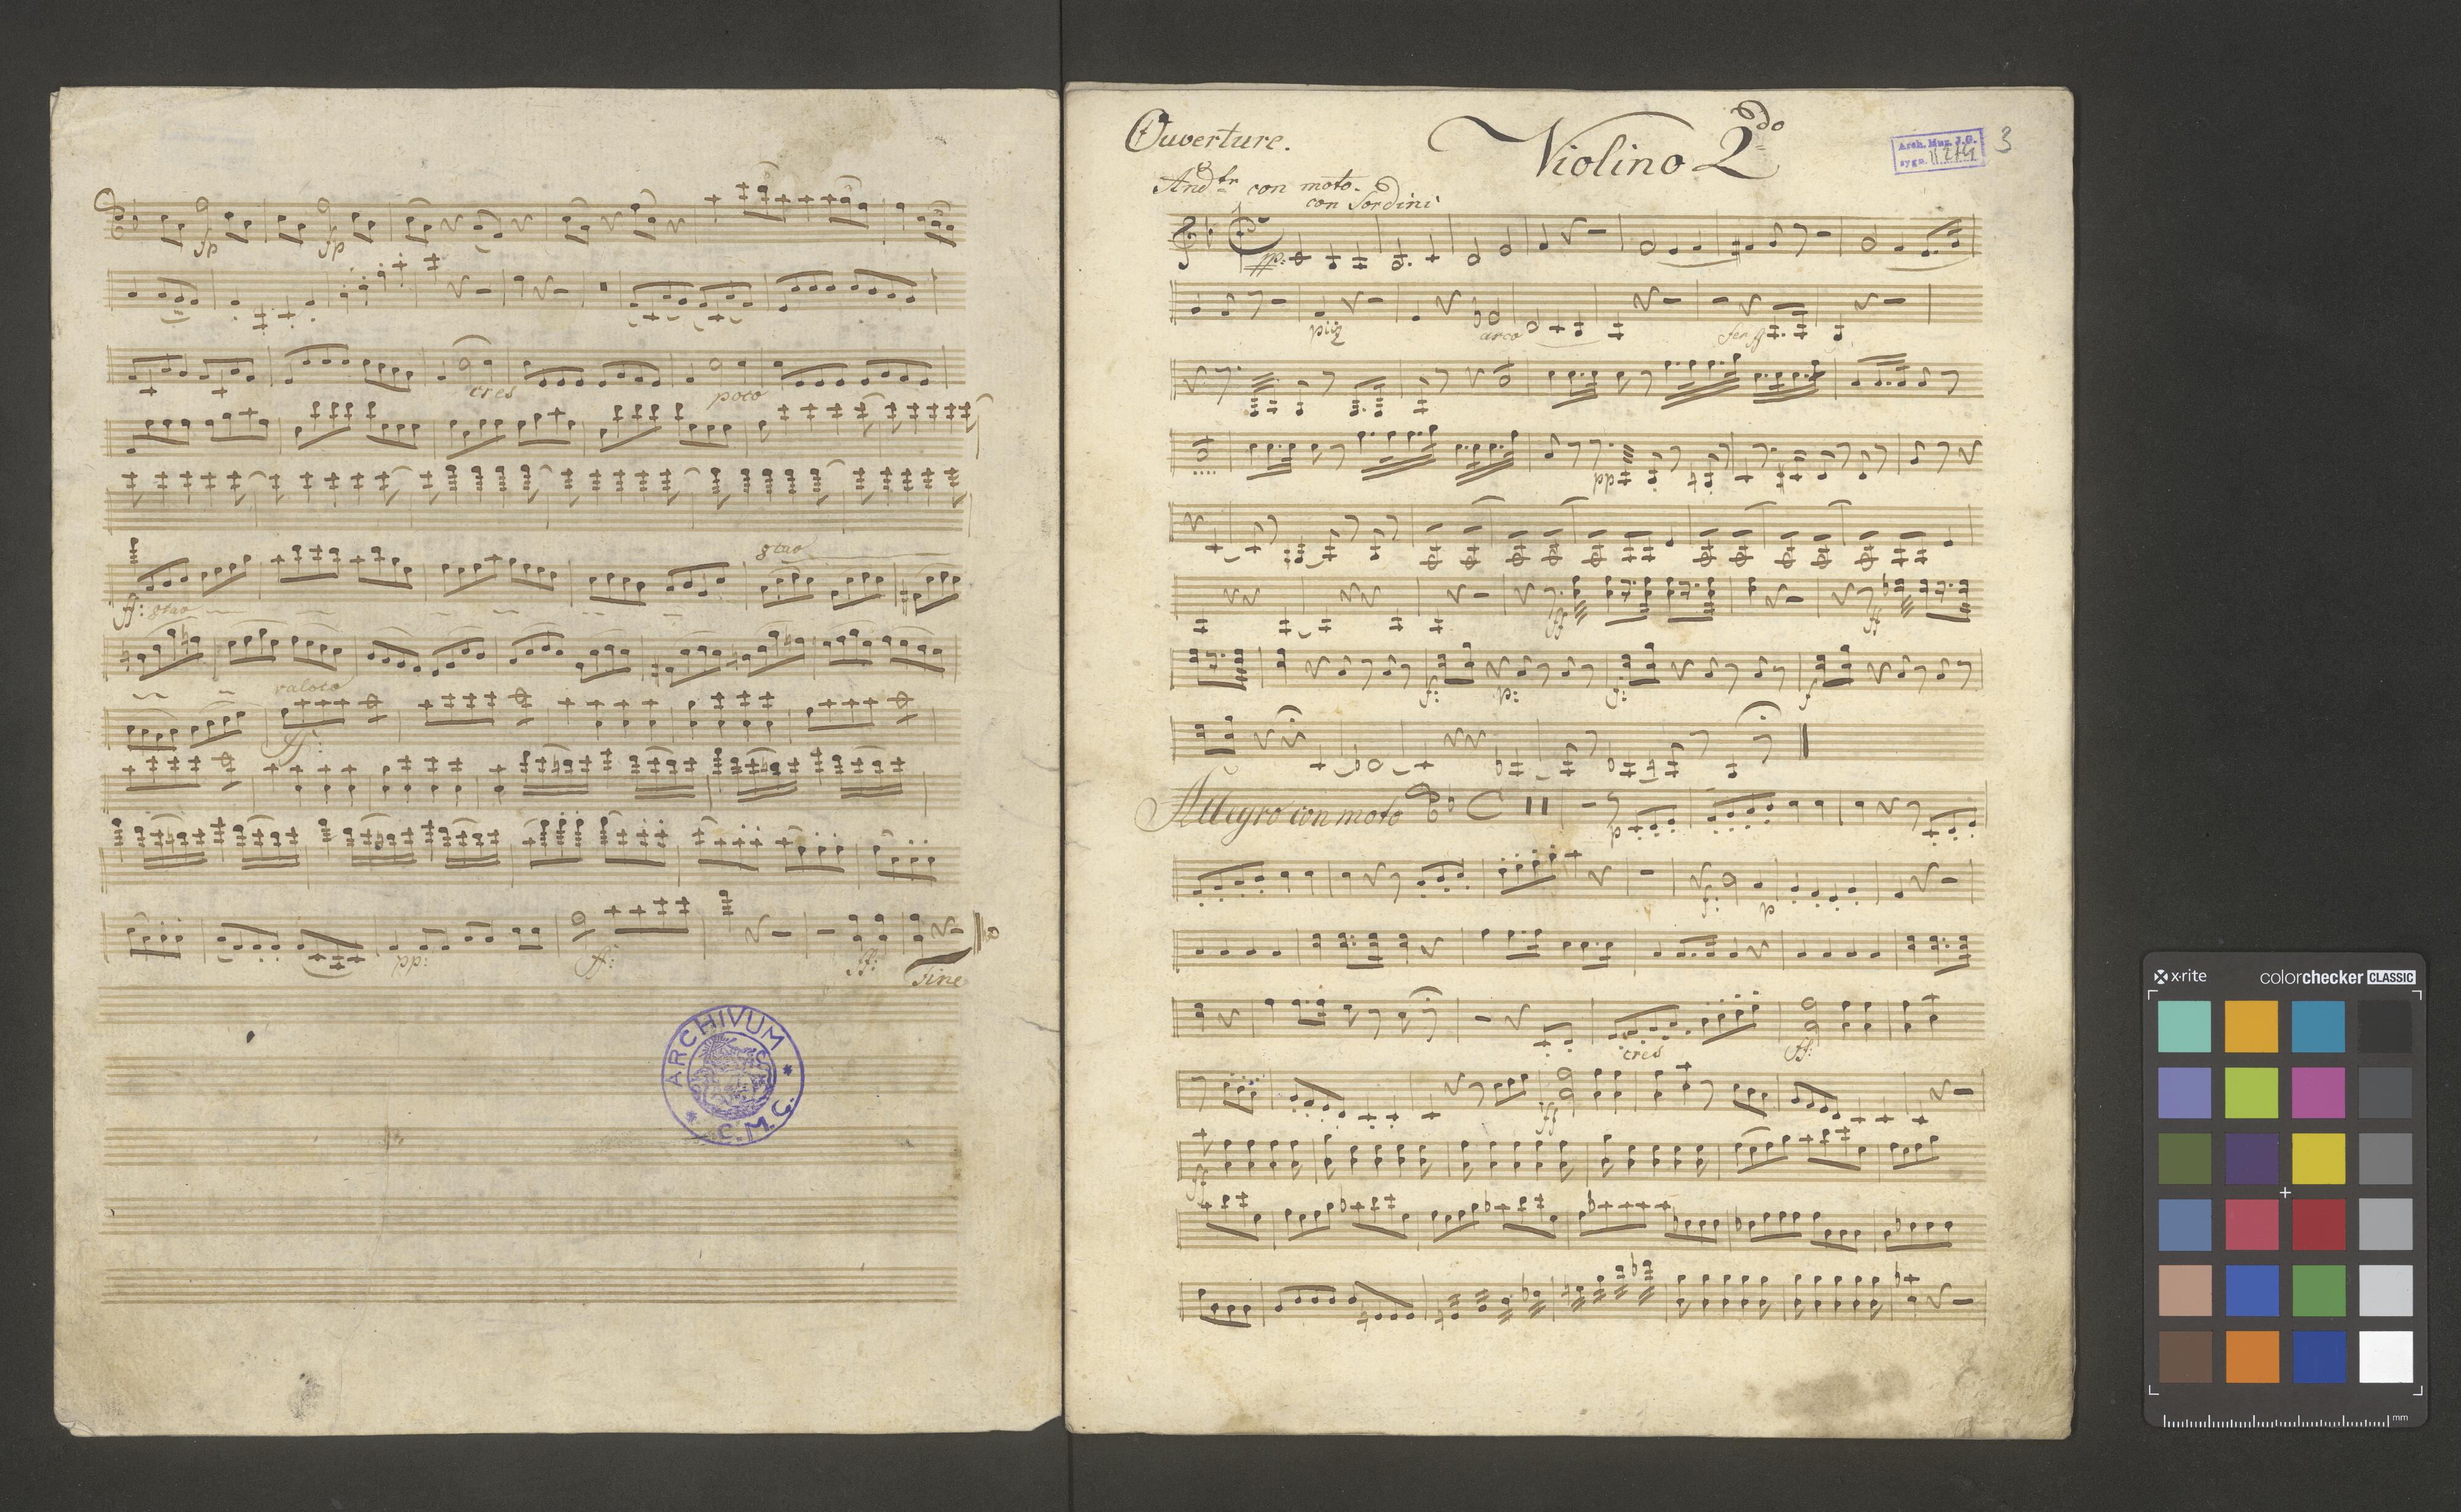 fp fp
cres poco
8tava
ff: 8tava
raloco
ff:
pp: ff: ff:
Fine
ARCHIVUM * C.M.G. *
Ouverture. Violino 2do
Arch. Muz. J.G.
sygn. II 214
3
Andtr con moto.
con Sordini
pp:
piz arco
pp
ff ff
f: p: f: f
Allegro con moto C p
f: p
cres ff:
ff
ff
x-rite colorchecker CLASSIC
mm